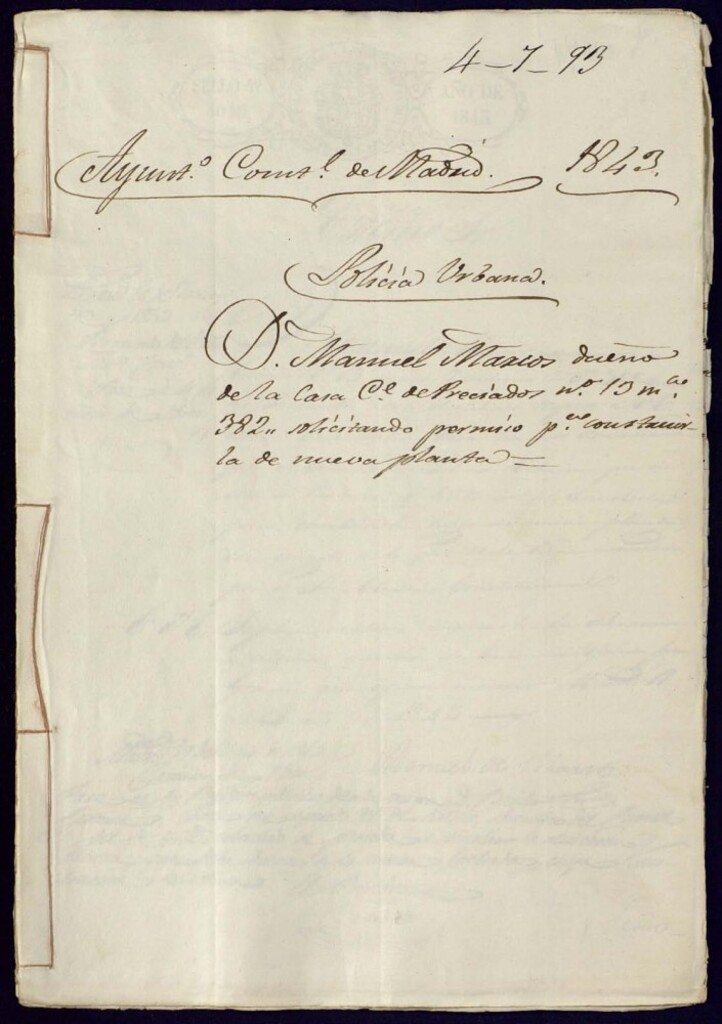 4-7-93
Ayunt.º Const.l de Madrid. 1843.
Policia Urbana.
D. Manuel Marcos dueño
de la Casa C.e de Preciados n.º 13 m.na
382,, solicitando permiso p.ra construir-
la de nueva planta=